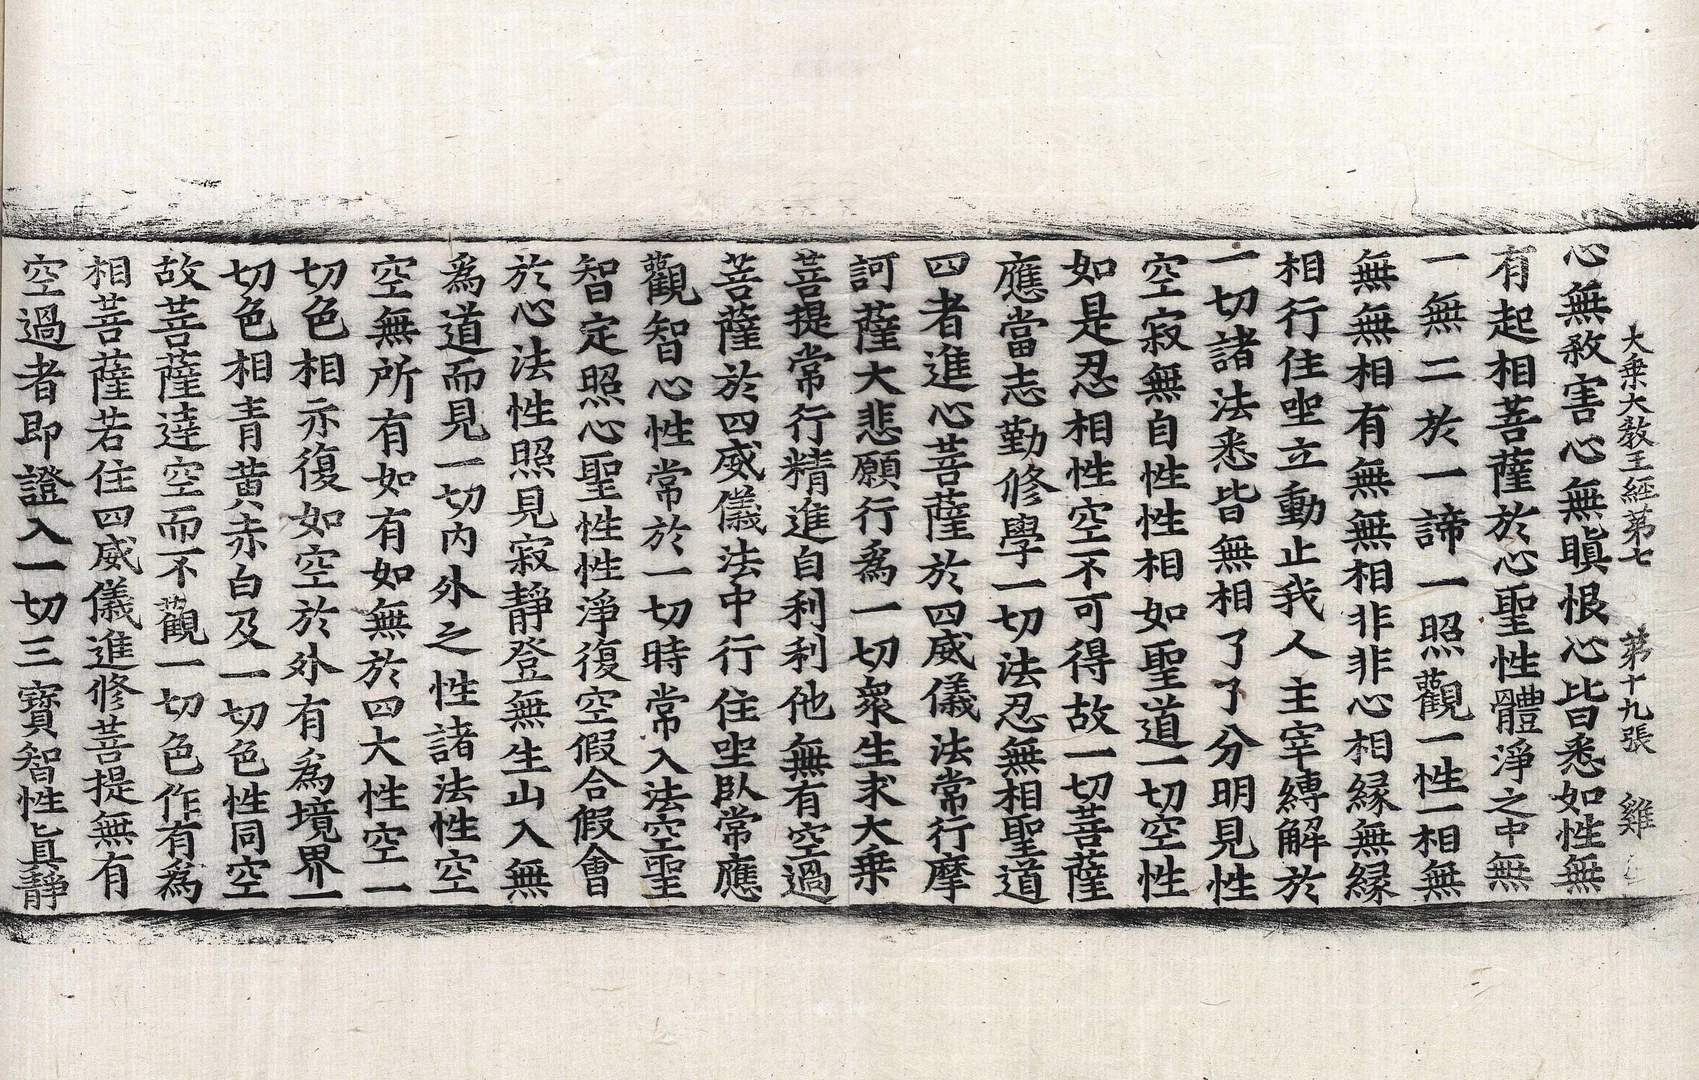 大乗大敎王經第七 第十九張 雞
心無敎害心無瞋恨心皆悉如性無
有起相菩薩於心聖性體淨之中無
一無二於一諦一照觀一性一相無
無無相有無無相非非心相緣無緣
相行住坐立動止我人主宰縛解於
一切諸法悉皆無相了了分明見性
空寂無自性性相如聖道一切空性
如是忍相性空不可得故一切菩薩
應當志勤修學一切法忍無相聖道
四者進心菩薩於四威儀法常行摩
訶薩大悲願行爲一切衆生求大乗
菩提常行精進自利利他無有空過
菩薩於四威儀法中行住坐臥常應
觀智心性常於一切時常入法空聖
智定照心聖性性淨復空假合假會
於心法性照見寂靜登無生山入無
爲道而見一切內外之性諸法性空
空無所有如有如無於四大性空一
切色相亦復如空於外有爲境界一
切色相青黃赤白及一切色性同空
故菩薩達空而不觀一切色作有爲
相菩薩若住四威儀進修菩提無有
空過者即證入一切三寶智性眞靜